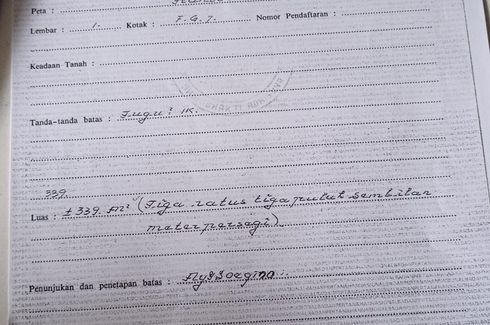 Peta :
Lembar : 1. Kotak : F.G.7. Nomor Pendaftaran :
Keadaan Tanah :
Tanda-tanda batas : Tugu² IK.
339
Luas : ± 339 M² (Tiga ratus tiga puluh sembilan
meter persegi)
Penunjukan dan penetapan batas :